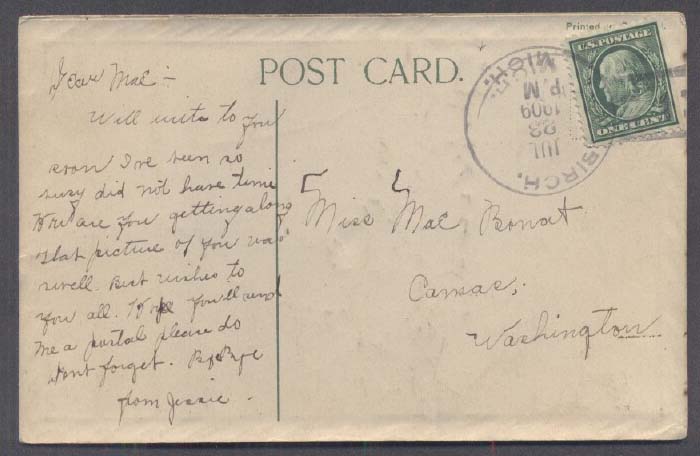 POST CARD.
Printed
U.S. POSTAGE
ONE CENT
BIRCH.
MICH.
JUL
23
1909
P M
Dear Mae :-
Will write to you
soon I've been so
busy did not have time
How are you getting along
that picture of you was
swell. Best wishes to
you all. Hope you'll send
me a postal please do
dont forget. Bye Bye
from Jessie.
Miss Mae Bonat
Camas,
Washington